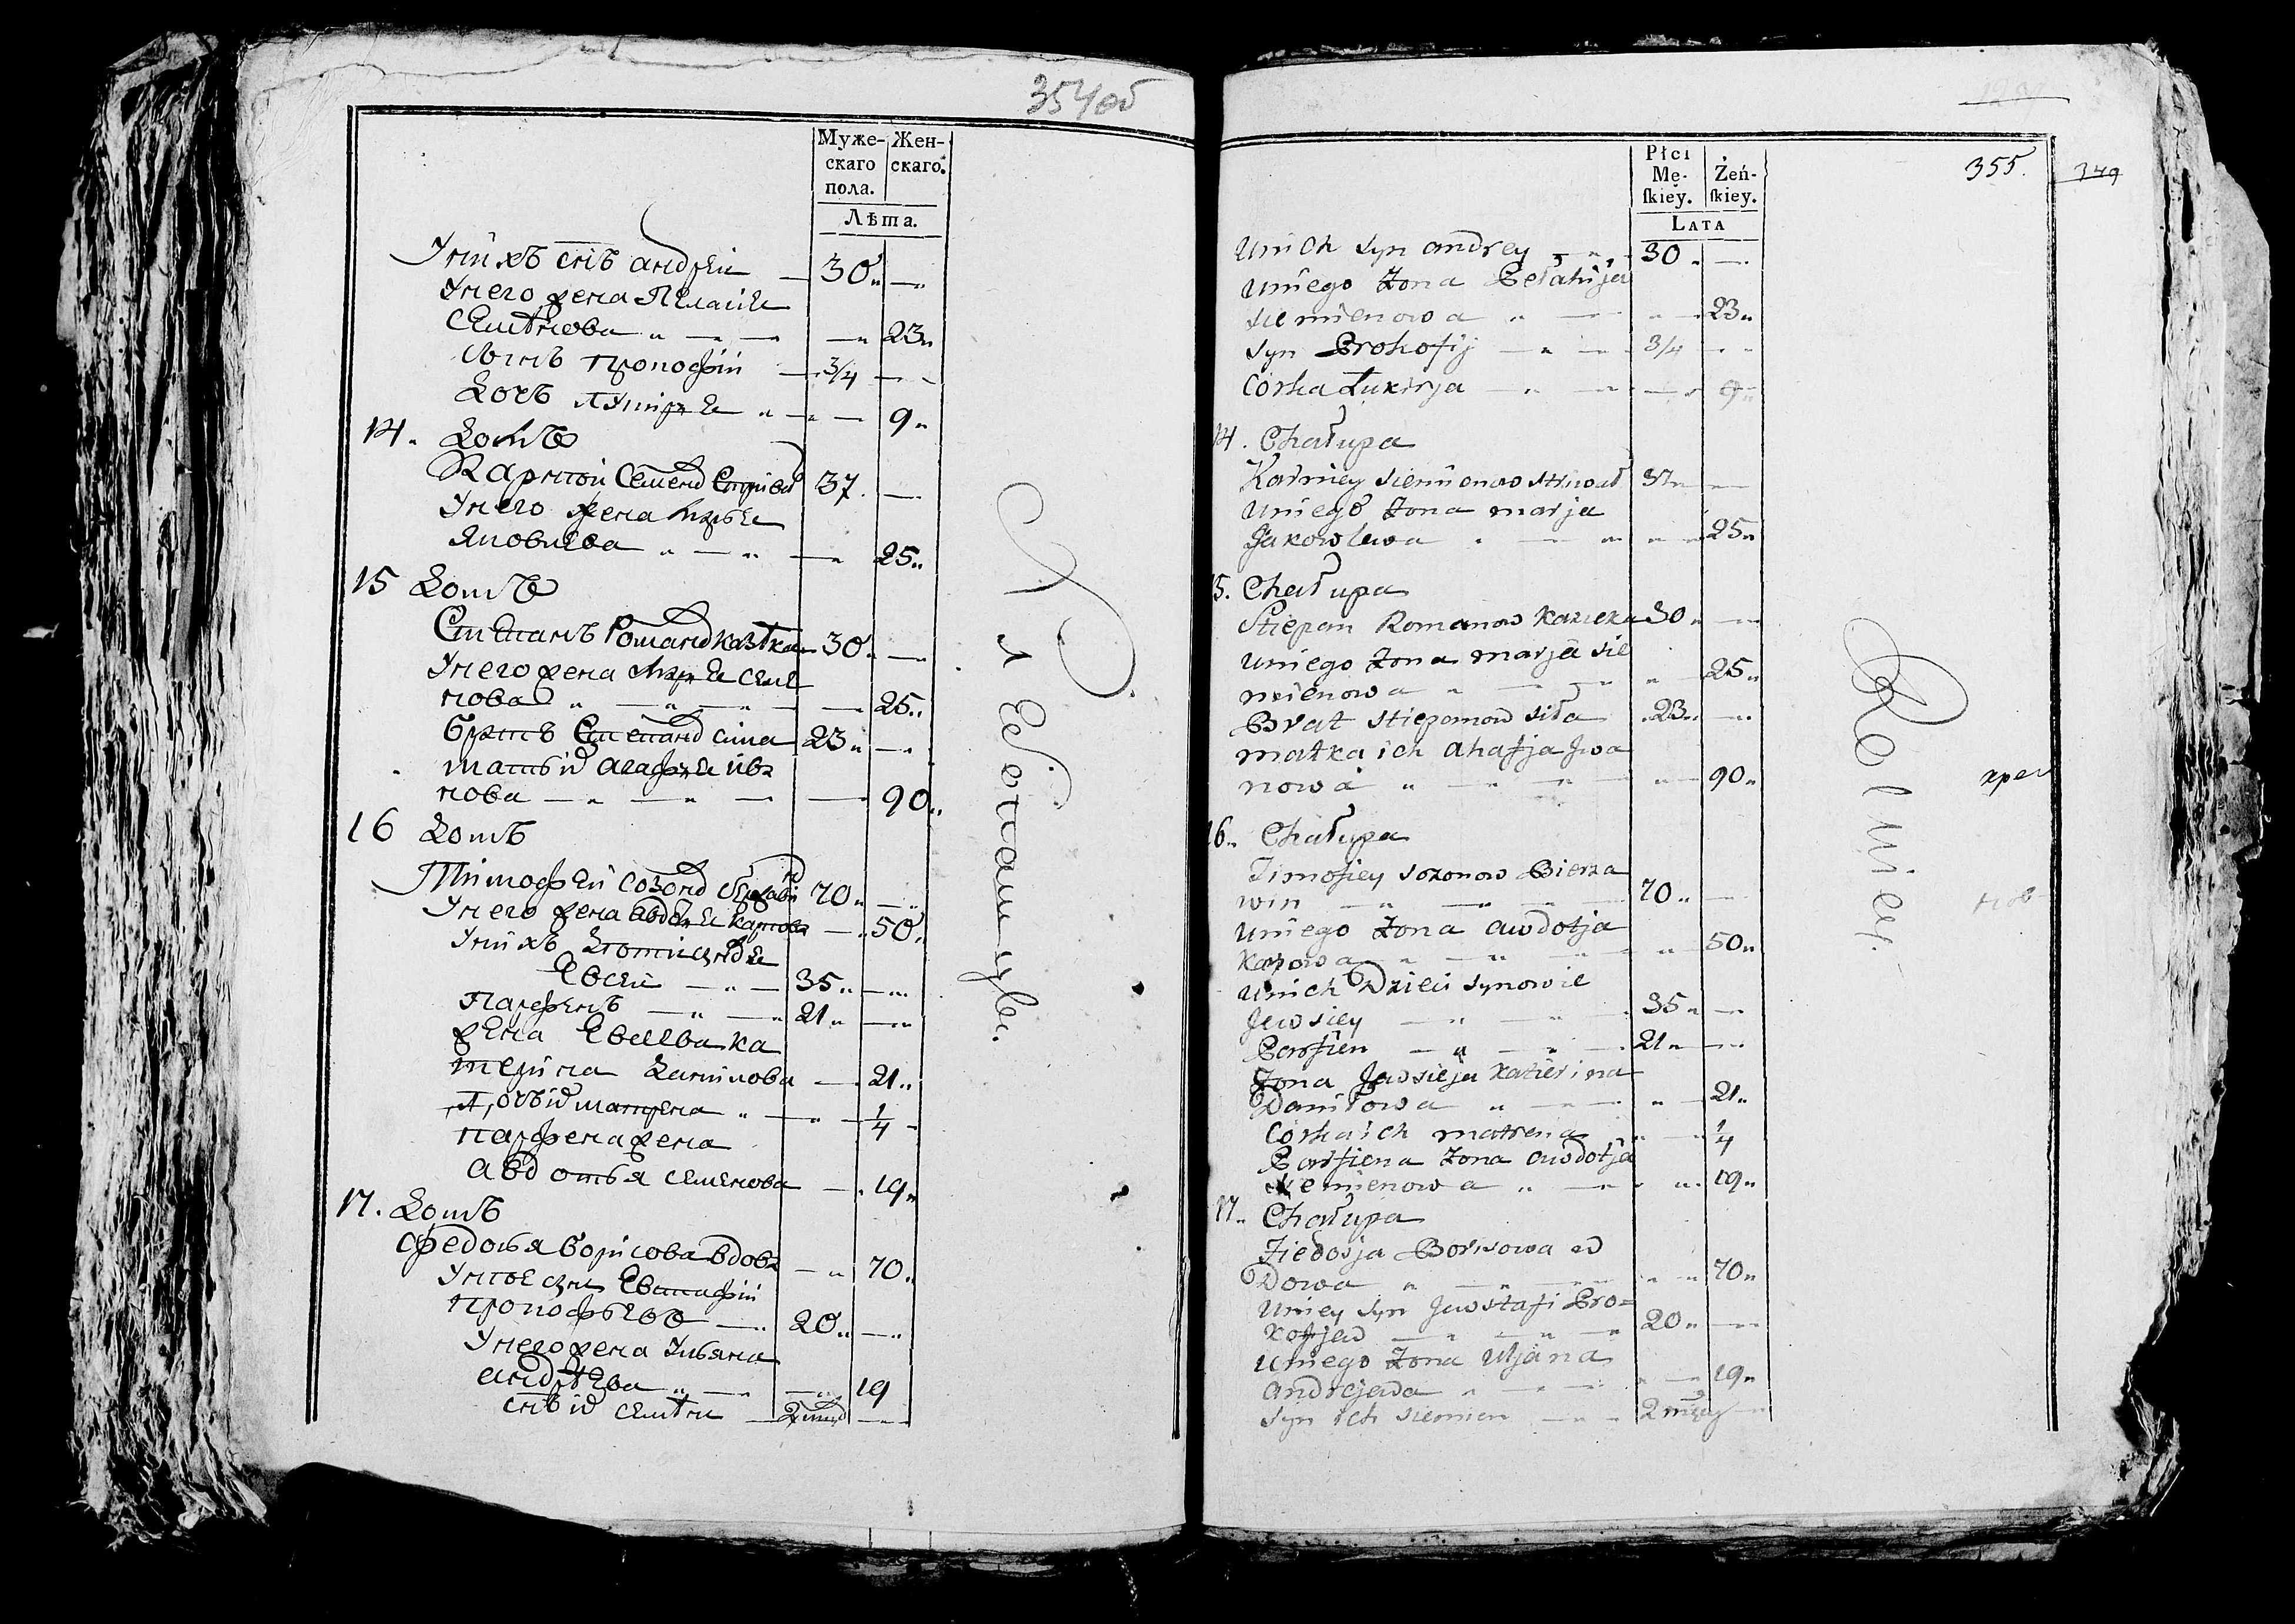 354об
Муже-
скаго
пола.
Жен-
скаго.
Лѣта.
Унихъ снъ андреи 30
Унего жена Пелагiя
Семѣнова 23
Сынъ прокофiй 3/4
Дочь Лукирiя 9
14. Домъ
Карнѣй Семенов 37
Унего жена марья
Яковлева 25
15 Домъ
Степанъ Романов казѣка 30
Унего жена Марья семе
нова 25
братъ Степанов сила 23
мать их агафья ива
нова 90
16 Домъ
Тимофей созонов 70
Унего жена авдотья карпова 50
Унихъ дѣти сыновья
Евсей 35
Парфенъ 21
жена Евсеева ка
терина данилова 21
дочь их матрена 1/4
парфена жена
авдотья семенова 19
17. Домъ
федосья борисова вдова 70
Унее сын Евстафiй
прокофьевъ 20
Унего жена Ульяна
андрѣева 19
снъ их семѣн 2 мца
355.
349
Płci
Mę-
ſkiey.
Żeń-
ſkiey.
LATA
unich syn andrey 30
uniego żona Pełahija
siemienowa 23
syn Prokofij 3/4
córka Łukirja 9
14. Chałupa
Karniey siemionow 37
uniego żona marja
Jakowlewa 25
15. Chałupa
Stiepan Romanow kazieka 30
uniego żona marja sie
mienowa 25
Brat stiepanow siła 23
matka ich ahafja Jwa
nowa 90
16. Chałupa
Timofiey sozonow Bierza
win 70
uniego żona awdotja
karpowa 50
unich Dzieci synowie
Jewsiey 35
Parfien 21
żona Jewsieja katierina
Daniłowa 21
córka ich matrena 1/4
Parfiena żona awdotja
siemienowa 19
17. Chałupa
Fiedosja Borisowa w
Dowa 70
uniey syn Jewstafi Pro=
kofjew 20
uniego żona Uljana
andrejewa 19
syn ich siemien 2 mcy